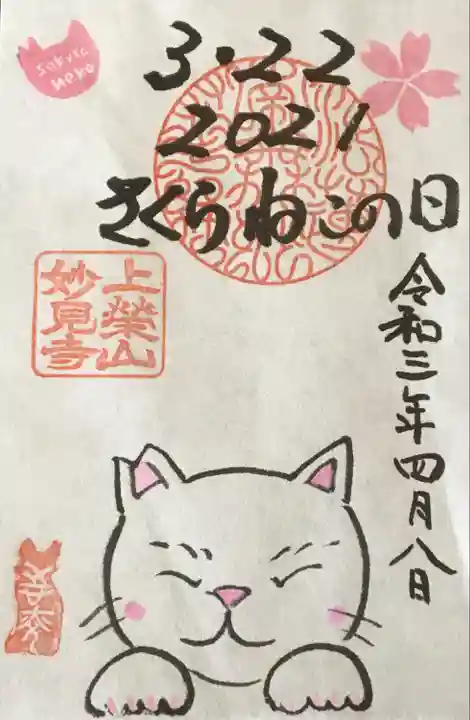 sakura
neko
3・22
2021
さくらねこの日
令和三年四月八日
上榮山
妙見寺